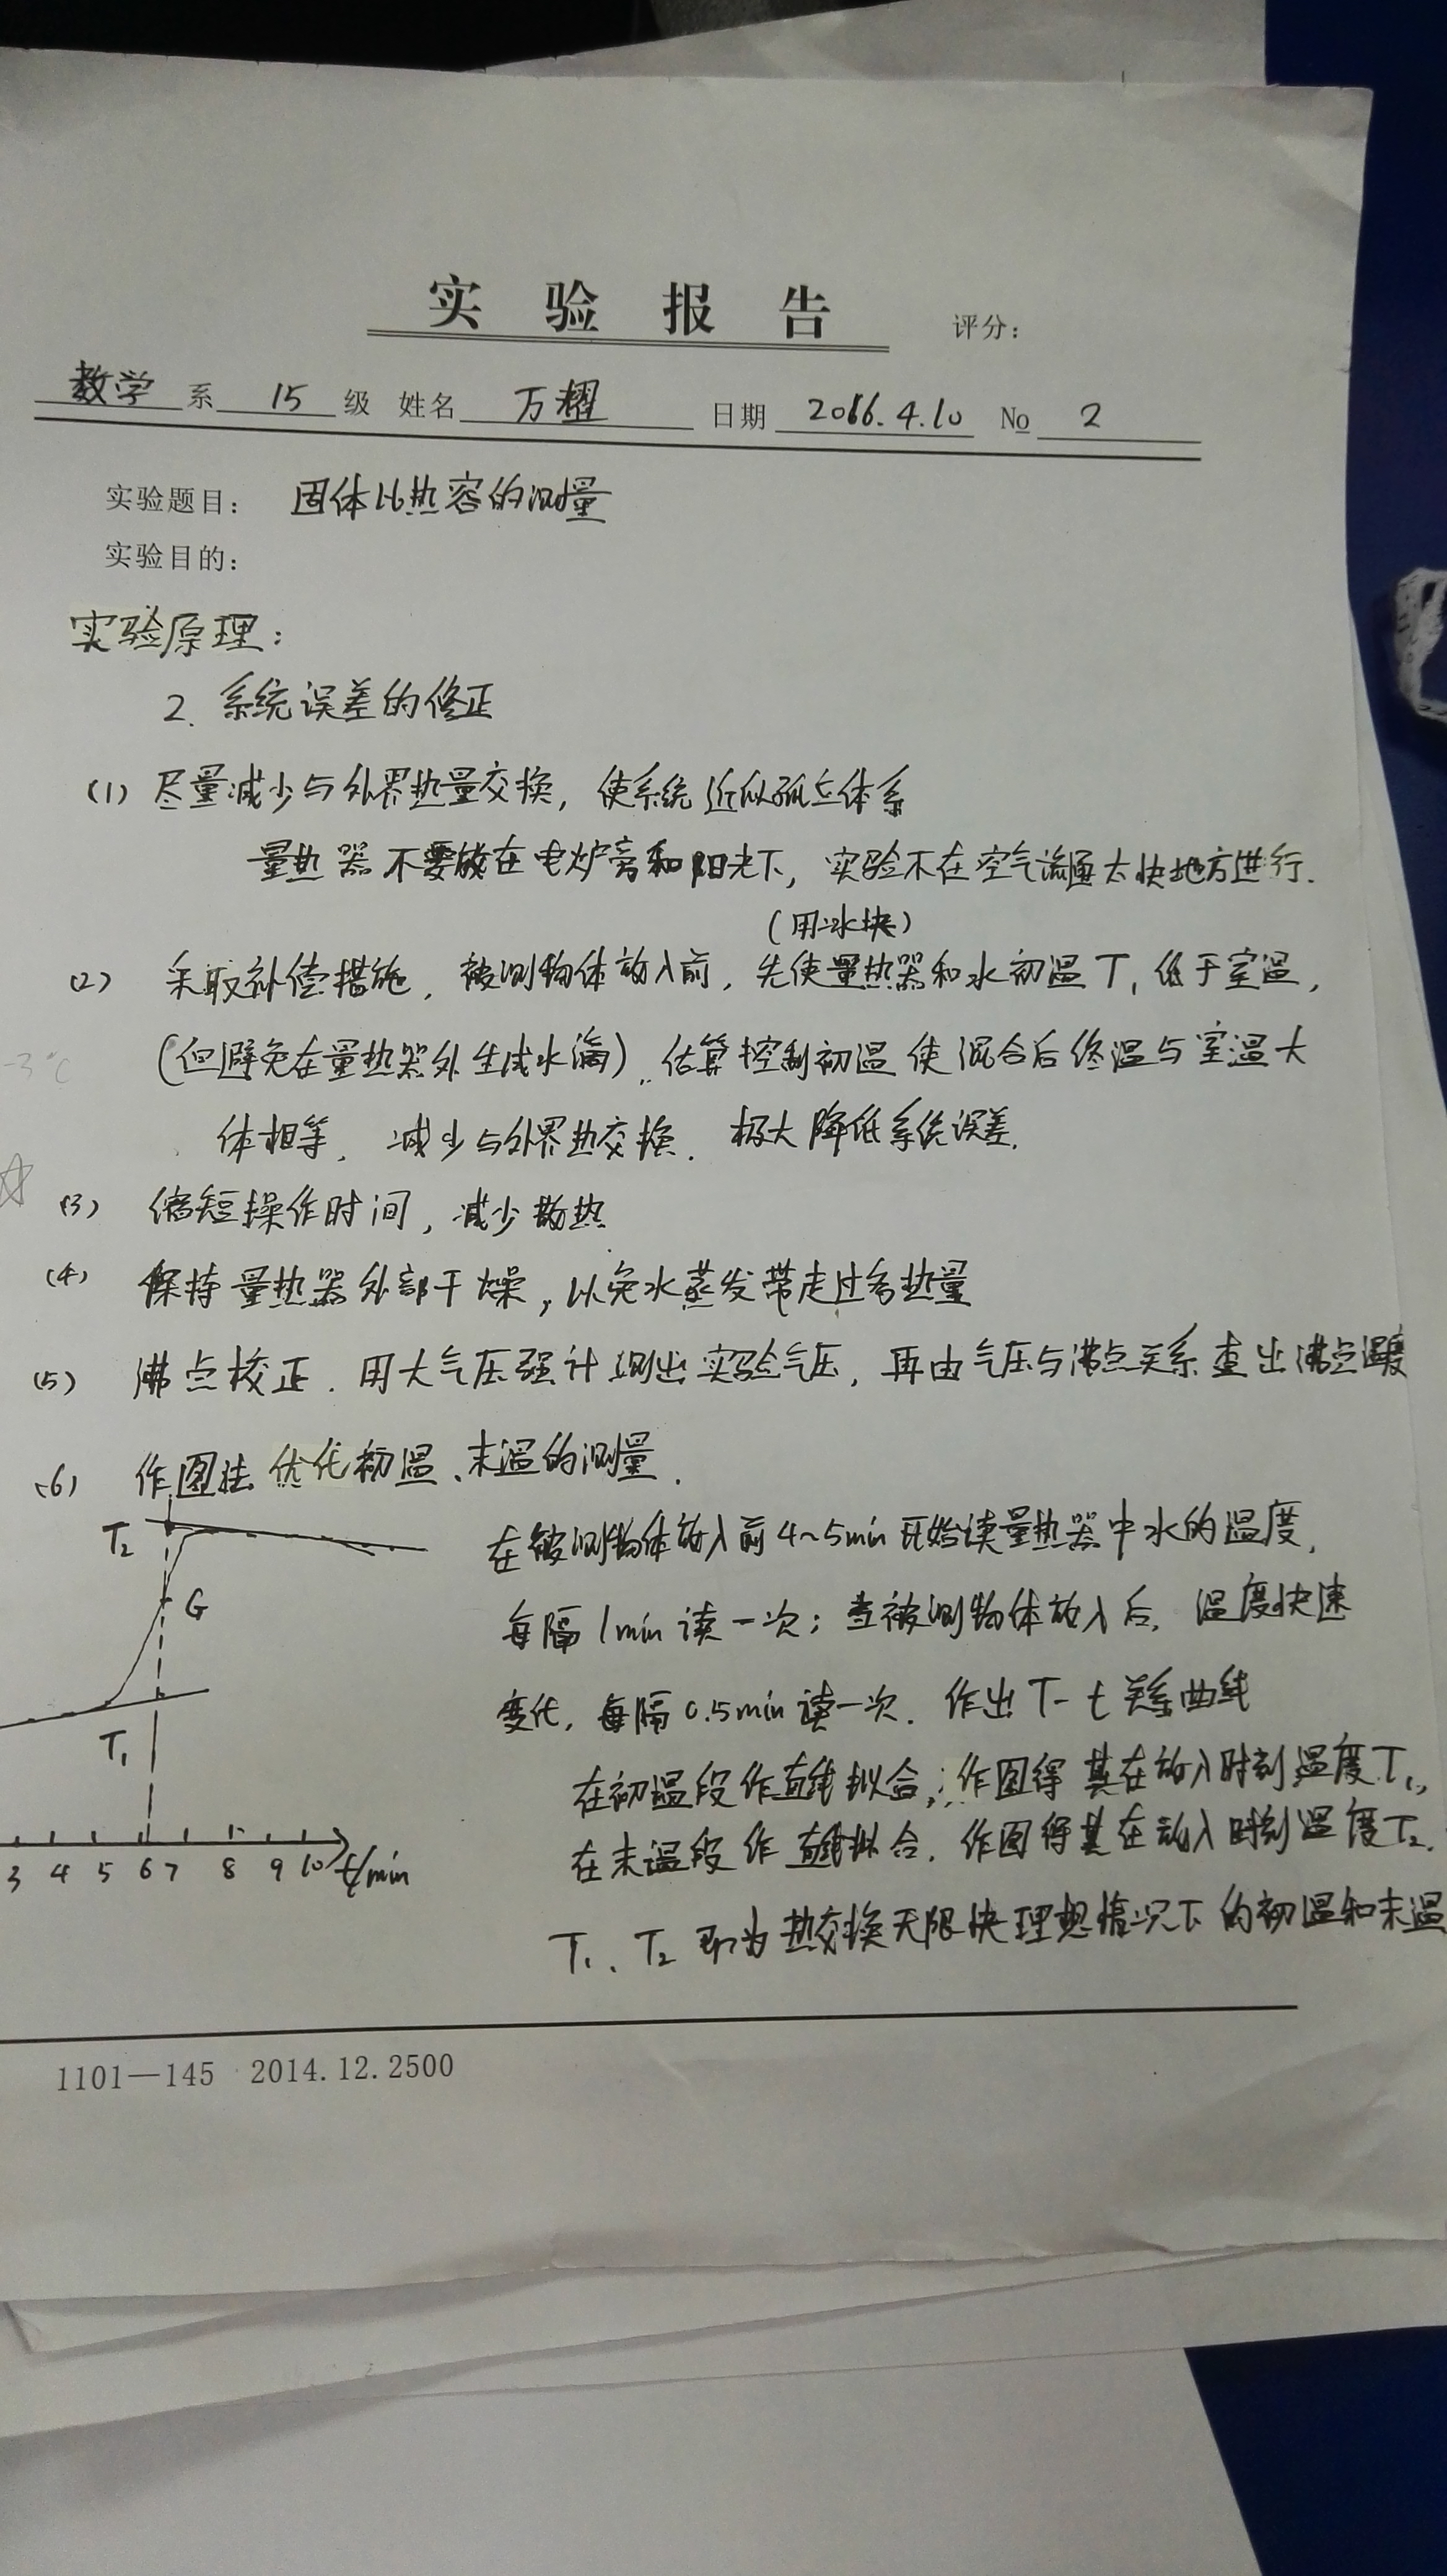 实验报告 评分:
数学 系 15 级 姓名 万耀 日期 2016.4.10 No 2
实验题目: 固体比热容的测量
实验目的:
实验原理:
2. 系统误差的修正
(1) 尽量减少与外界热量交换, 使系统近似孤立体系
量热器不要放在电炉旁和阳光下, 实验不在空气流通太快地方进行.
(用冰块)
(2) 采取补偿措施, 被测物体放入前, 先使量热器和水初温T₁低于室温,
(但避免在量热器外生成水滴), 估算控制初温使混合后终温与室温大
-3℃
体相等, 减少与外界热交换. 极大降低系统误差.
☆ (3) 缩短操作时间, 减少散热
(4) 保持量热器外部干燥, 以免水蒸发带走过多热量
(5) 沸点校正. 用大气压强计测出实验气压, 再由气压与沸点关系查出沸点温度
(6) 作图法优化初温、末温的测量.
T₂
G
T₁
3 4 5 6 7 8 9 10 t/min
在被测物体放入前4~5min开始读量热器中水的温度,
每隔1min读一次; 当被测物体放入后, 温度快速
变化, 每隔0.5min读一次. 作出T-t关系曲线
在初温段作直线拟合, 作图得其在放入时刻温度T₁,
在末温段作直线拟合. 作图得其在放入时刻温度T₂.
T₁、T₂即为热交换无限快理想情况下的初温和末温
1101—145 2014.12.2500